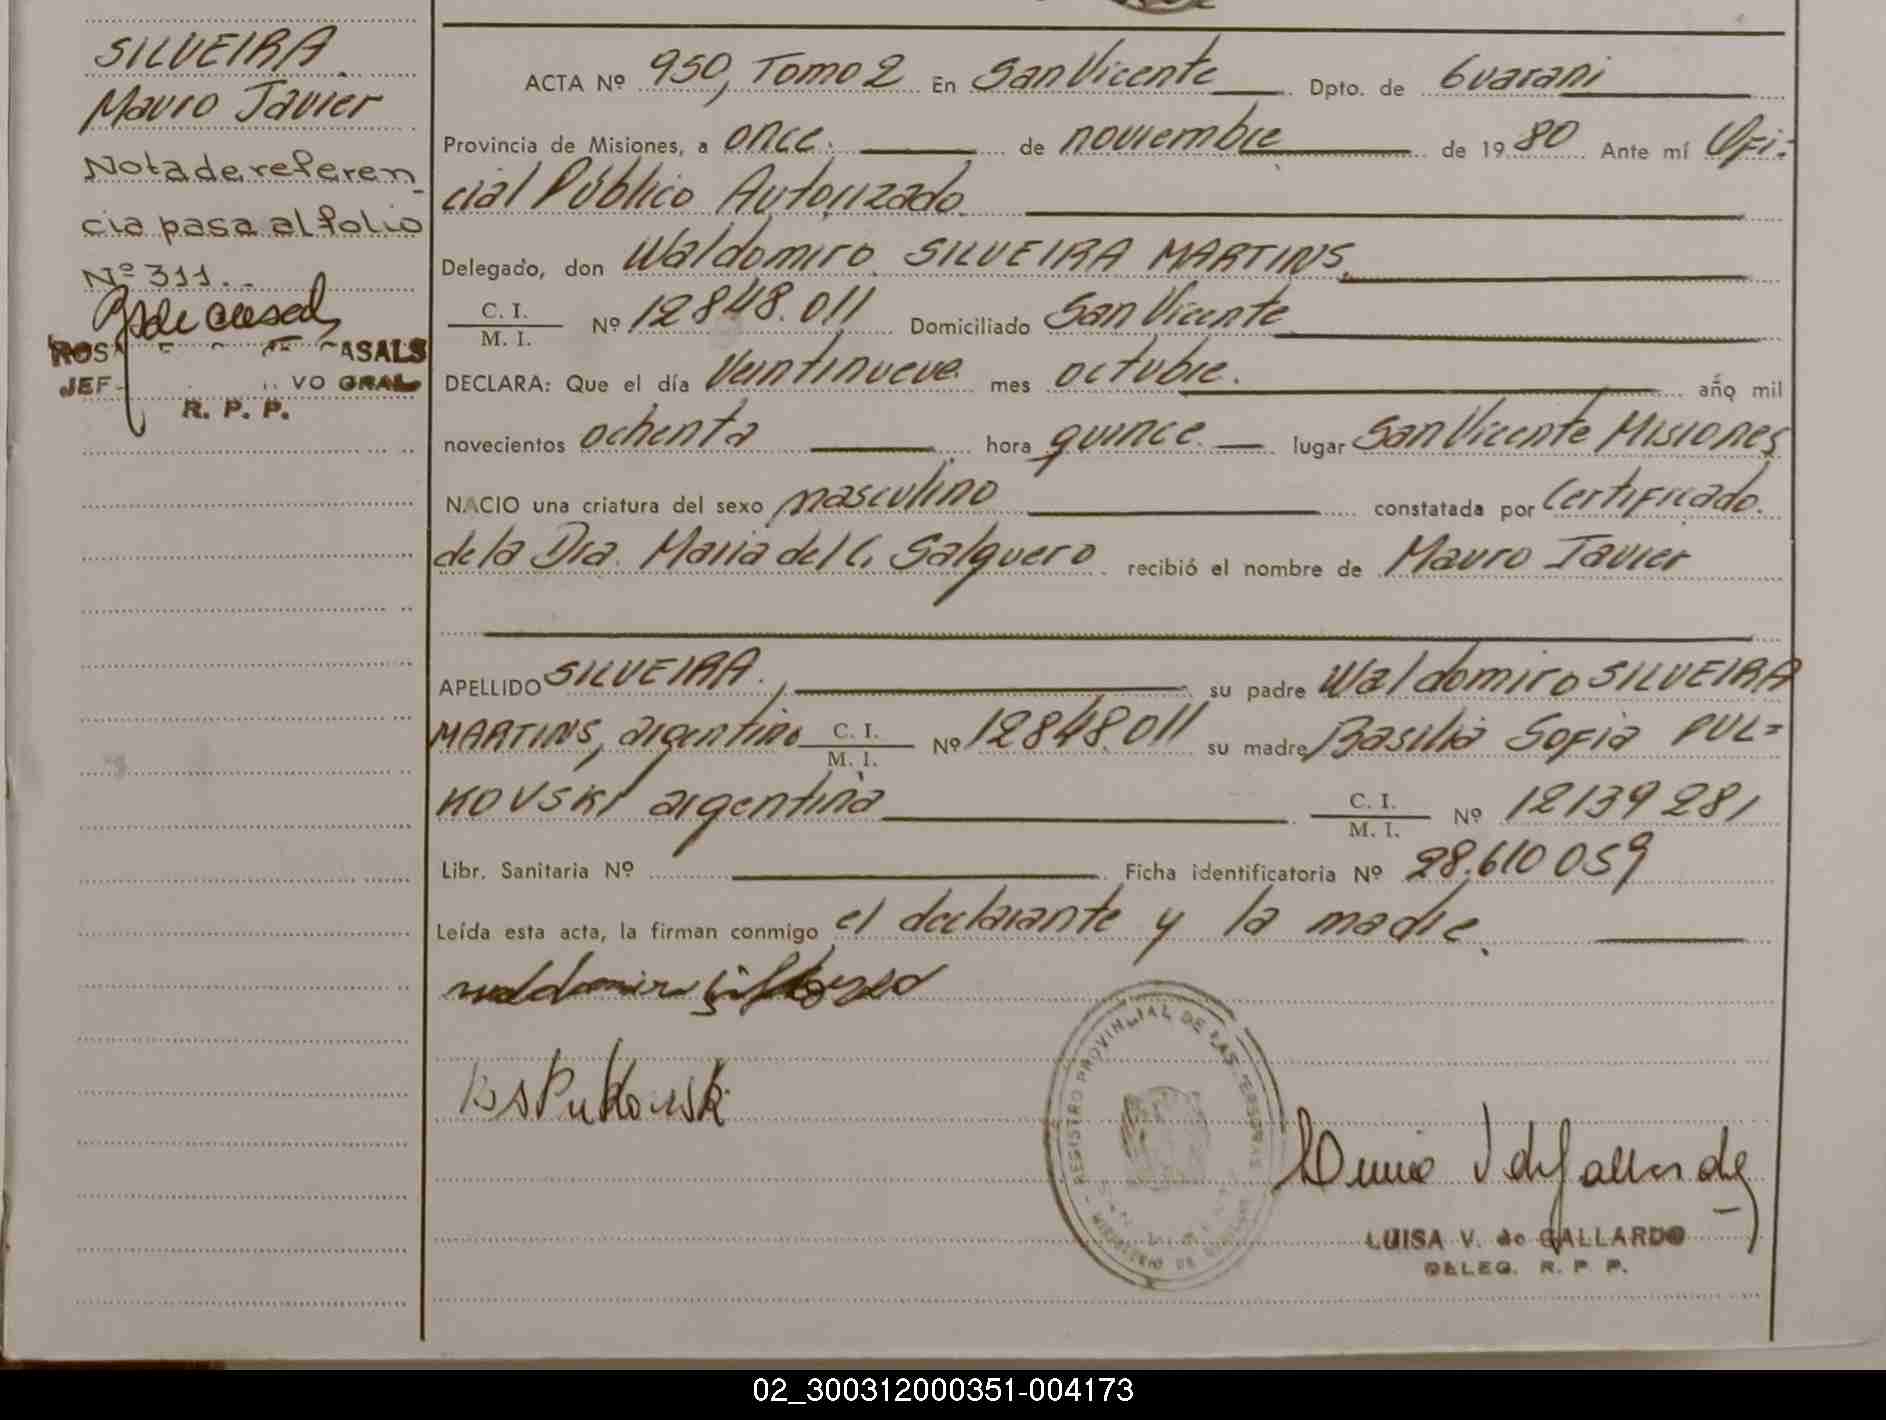 SILVEIRA
Mauro Javier
Nota de referen-
cia pasa al folio
Nº 311.-
ROSA CASALS
JEF VO GRAL
R. P. P.
ACTA Nº 950, Tomo 2 En San Vicente Dpto. de Guarani
Provincia de Misiones, a once. de noviembre de 1980 Ante mí Ofi-
cial Público Autorizado
Delegado, don Waldomiro SILVEIRA MARTINS
C. I.
M. I. Nº 12848.011 Domiciliado San Vicente
DECLARA: Que el día Veintinueve mes octubre. año mil
novecientos ochenta hora quince lugar San Vicente Misiones
NACIO una criatura del sexo masculino constatada por Certificado
de la Dra. Maria del C. Salguero recibió el nombre de Mauro Javier
APELLIDO SILVEIRA. su padre Waldomiro SILVEIRA
MARTINS, argentino C. I.
M. I. Nº 12848.011 su madre Basilia Sofia PUL=
KOVSKI argentina C. I.
M. I. Nº 12139281
Libr. Sanitaria Nº Ficha identificatoria Nº 28.610 059
Leída esta acta, la firman conmigo el declarante y la madre.
REGISTRO PROVINCIAL DE LAS PERSONAS
LUISA V. de GALLARDO
DELEG. R. P. P.
02_300312000351-004173